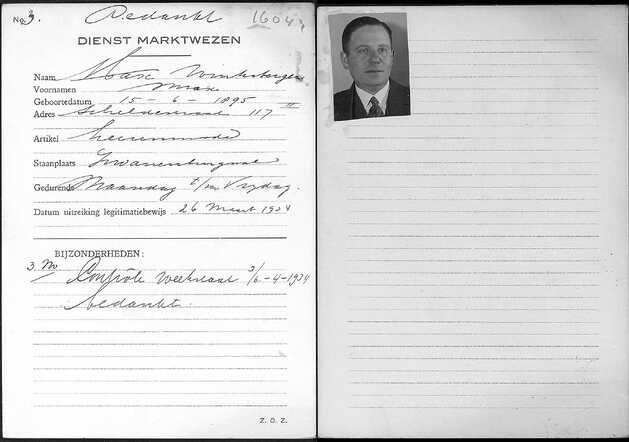 No. 3. Bedankt 1604
DIENST MARKTWEZEN
Naam Max
Voornamen Max
Geboortedatum 15 - 6 - 1895
Adres Scheldestraat 117 II
Artikel heerenmode
Staanplaats Zwanenburgwal
Gedurende Maandag t/m Vrijdag.
Datum uitreiking legitimatiebewijs 26 Maart 1934
BIJZONDERHEDEN:
3. Controle weekstaat 3/6-4-1934
bedankt.
Z. O. Z.